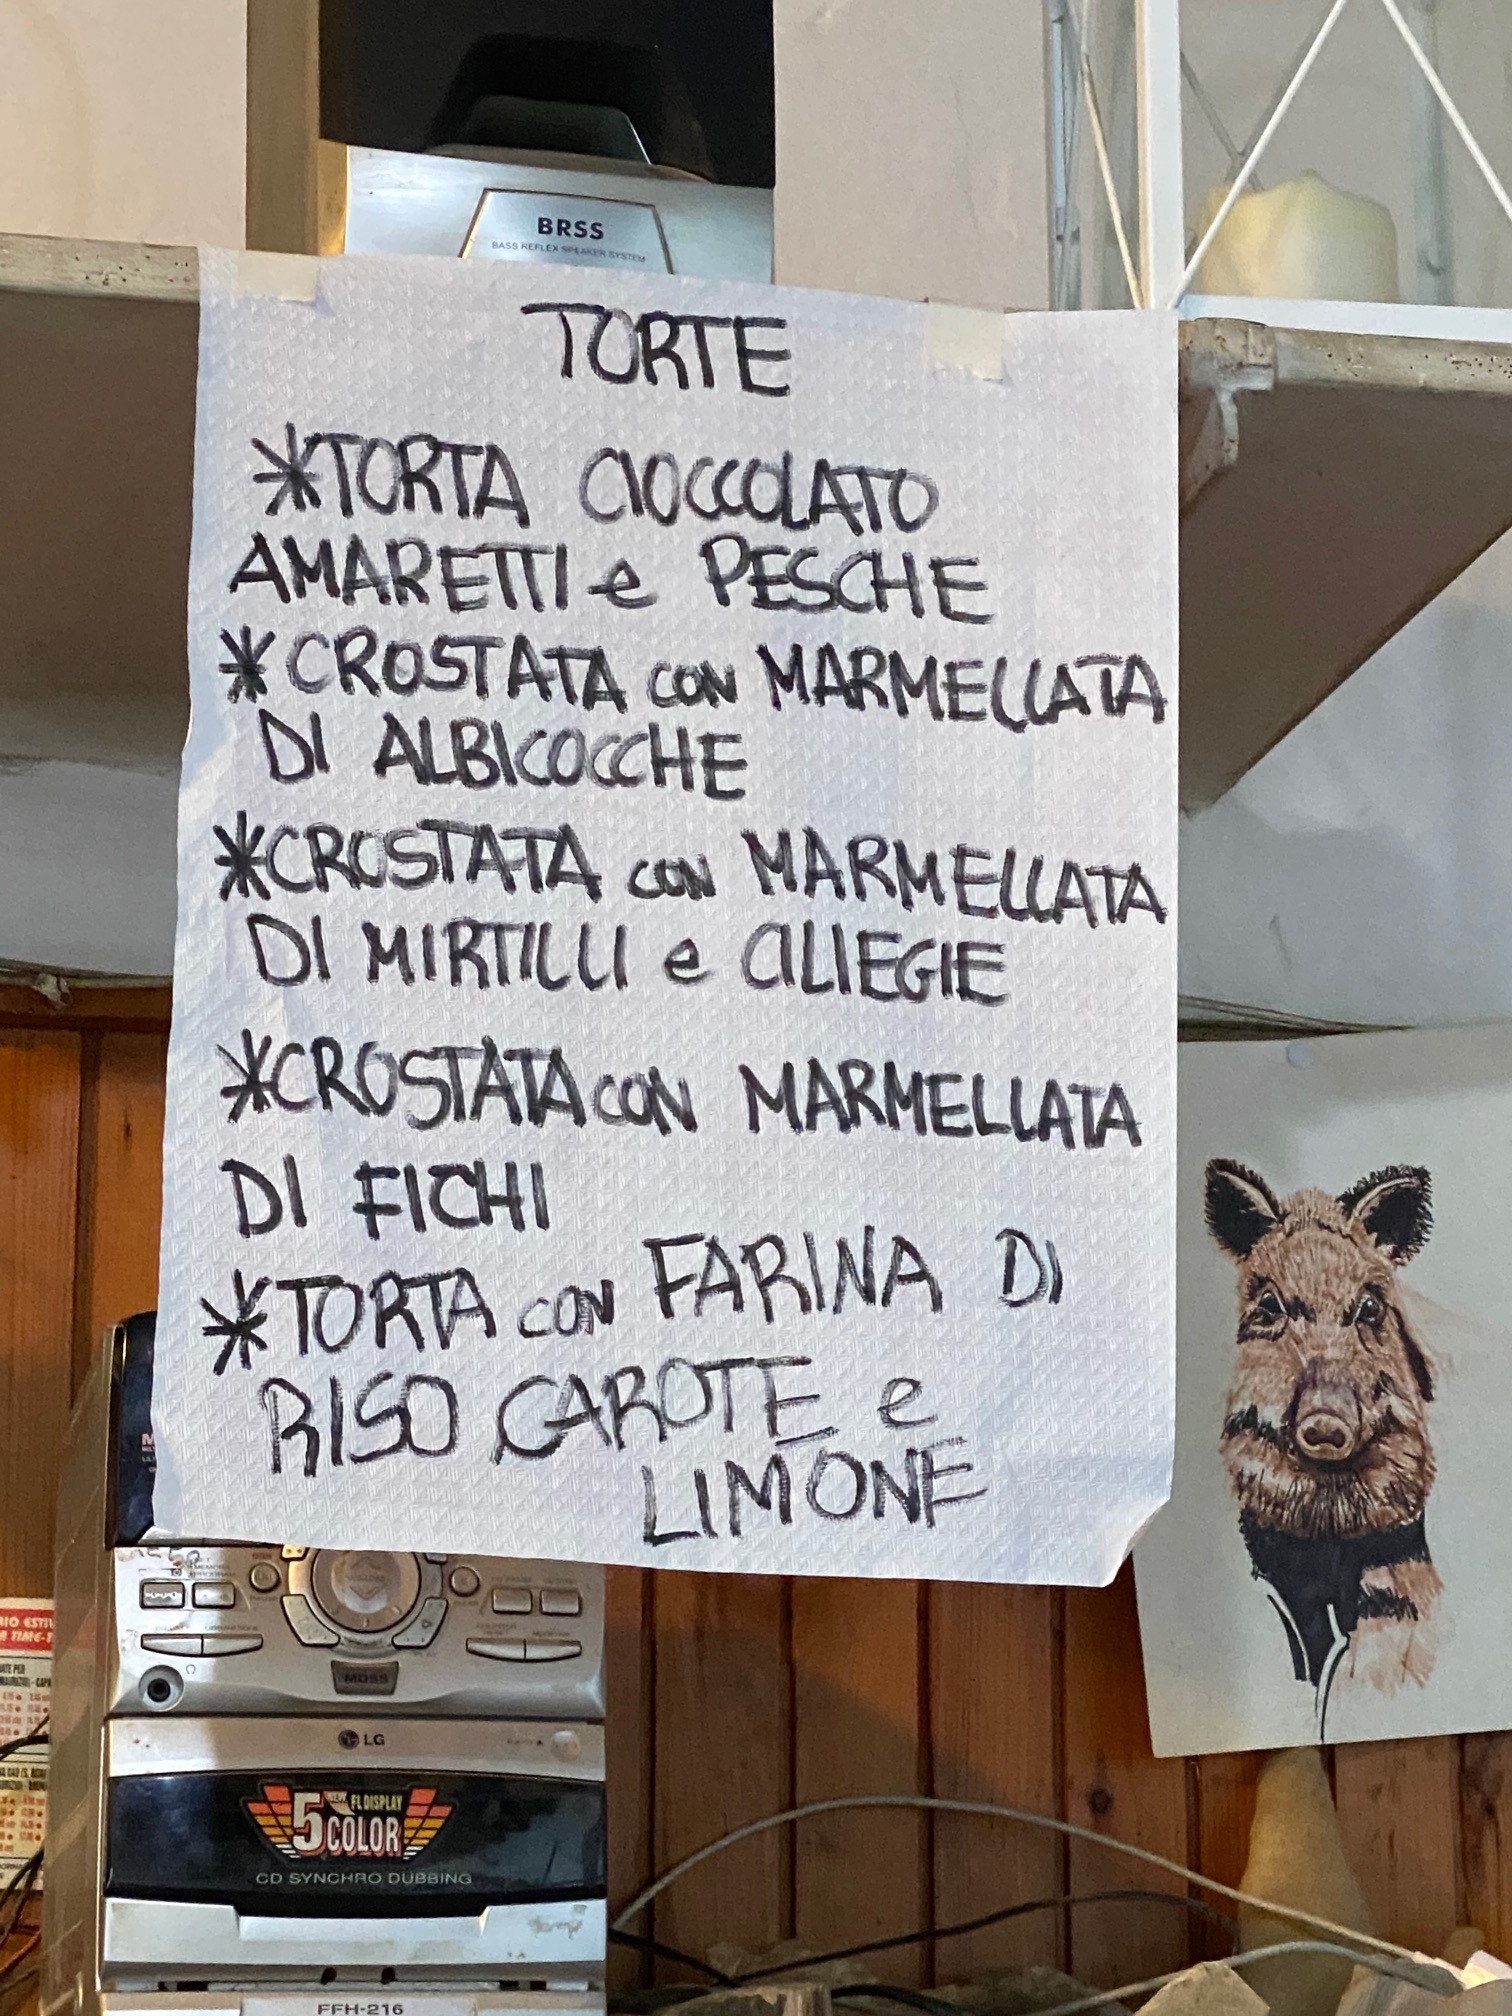 BRSS
BASS REFLEX SPEAKER SYSTEM
TORTE
*TORTA CIOCCOLATO
AMARETTI e PESCHE
*CROSTATA CON MARMELLATA
DI ALBICOCCHE
*CROSTATA CON MARMELLATA
DI MIRTILLI e CILIEGIE
*CROSTATA CON MARMELLATA
DI FICHI
*TORTA CON FARINA DI
RISO CAROTE e
LIMONE
MDSS
LG
NEW FL DISPLAY
5 COLOR
CD SYNCHRO DUBBING
FFH-216